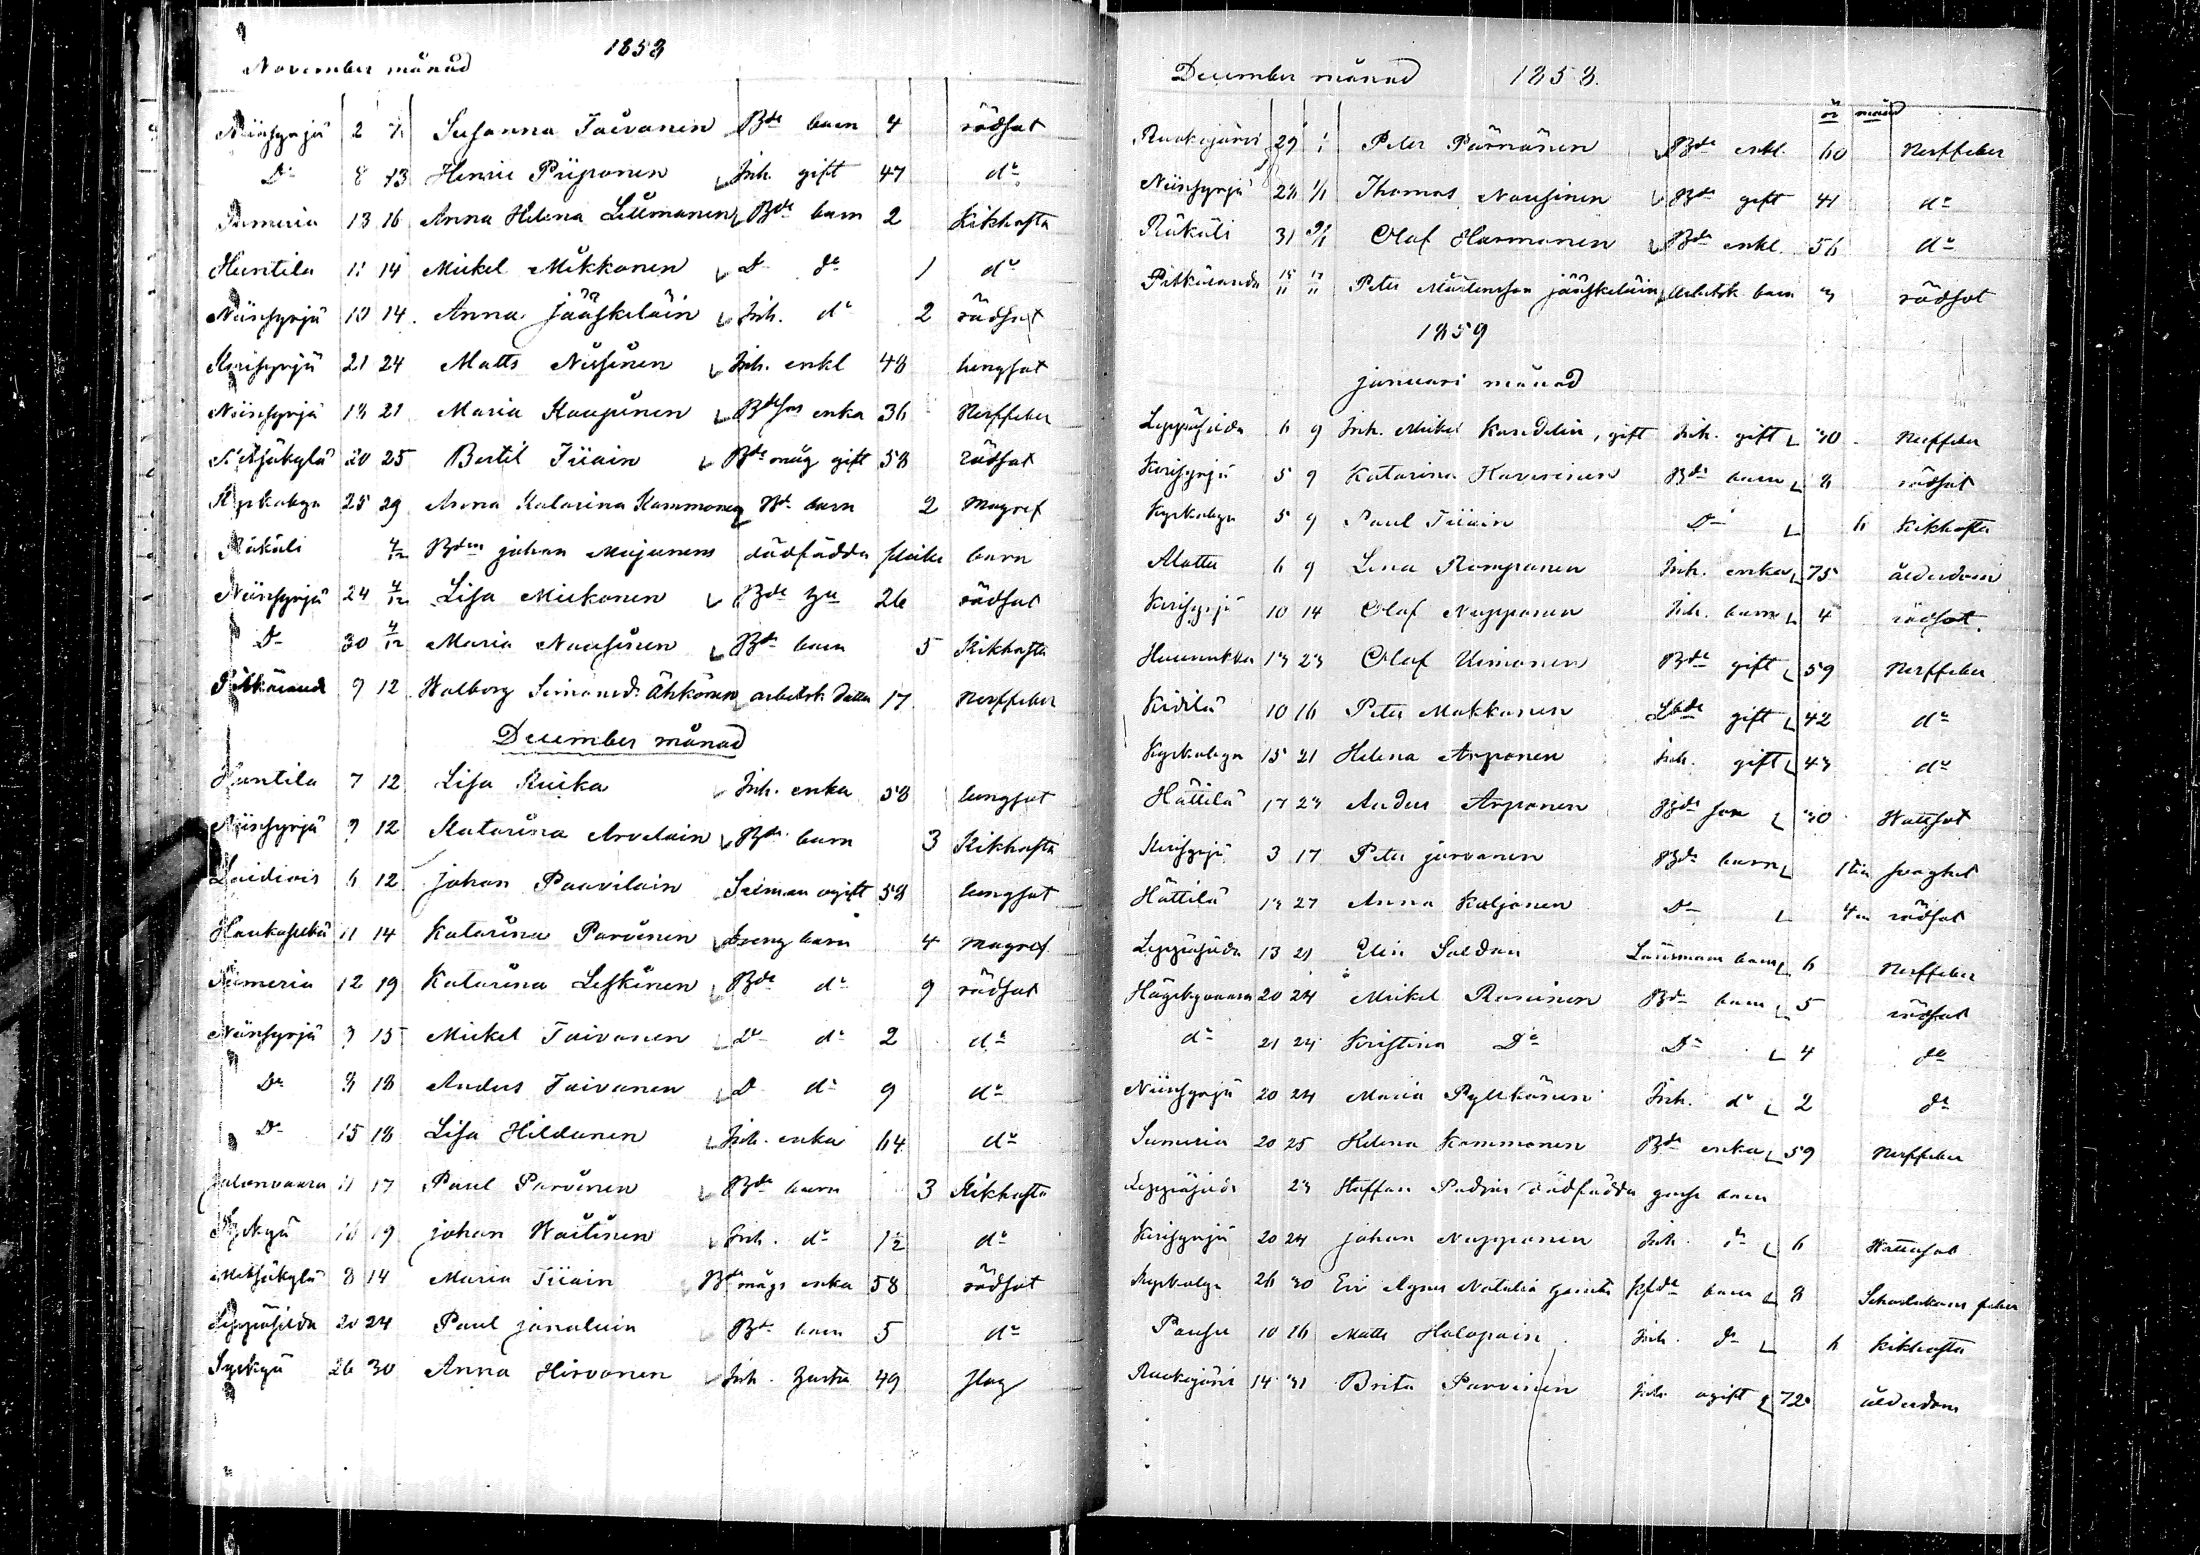 November månad 1858
2 7 Susanna Taivanen Bde barn 4 rödsot
Do 8 13 Henric Piiponen Inh. gift 47 do
13 16 Anna Helena Bde barn 2 Kikhosta
Huntila 11 14 Mickel Mikkonen D do 1 do
Niinisyrjä 10 14 Anna Jääskeläin Inh. do 2 rödsot
Kirisyrjä 21 24 Matts Nusinen Inh. enkl 48 lungsot
Niinisyrjä 18 21 Maria Kaupinen enka 36 Nerffeber
20 25 Bertil Tiiain Bde måg gift 58 rödsot
Kyrkobyn 25 29 Anna Katarina Kammonen Bde barn 2 magref
Räkäli 4/12 Bden johan Mujunens dödfödda flicke barn
Niinisyrjä 24 4/12 Lisa Miikonen Bde 26 rödsot
Do 30 4/12 Maria Nousinen Bde barn 5 Kikhosta
Pitkäranda 9 12 Walborg Simonsd. Ähkönen arbetsk. dotter 17 Nerffeber
December månad
Huntila 7 12 Lisa Ruika Inh. enka 58 lungsot
Niinisyrjä 9 12 Katarina Arvelain Bde barn 3 Kikhosta
6 12 johan Paavilain ogift 58 lungsot
Haukaselkä 11 14 Katarina Parvinen barn 4 magref
12 19 Katarina Leskinen Bde do 9 rödsot
Niinisyrjä 9 15 Mickel Taivonen D do 2 do
Do 8 18 Anders Taivanen D do 9 do
Do 15 18 Lisa Hildunen Inh. enka 64 do
Jalovaara 11 17 Paul Parvinen Bde barn 3 Kikhosta
Syskyä 16 19 johan Waitinen Inh. do 1½ do
Metsäkylä 8 14 Maria Tiiain Bde mågs enka 58 rödsot
Leppäsilda 20 24 Paul janaluin Bde barn 5 do
Syskyä 26 30 Anna Hirvonen Inh. hustru 49 slag
December månad 1858.
år månad
Ruokojärvi 29 1 Peter Pärnänen Bde enkl. 60 Nerffeber
Niinisyrjä 28 1/1 Thomas Nousinen Bde gift 41 do
Räkäli 31 Olof Harmonen Bde enkl. 56 do
Pitkäranda 15/11 17/11 Peter Mårtensson jääskeläin arbetsk. barn 3 rödsot
1859
januari månad
Leppäsilda 6 9 Inh. Mikel Kandelin, gift Inh. gift 30 Nerffeber
Kirisyrjä 5 9 Katarina Bde barn 8 rödsot
Kyrkobyn 5 9 Paul Tiiain Do 6 Kikhosta
Alattu 6 9 Lena Romppanen Inh. enka 75 ålderdom
Kirisyrjä 10 14 Olof Nupponen Inh. barn 4 rödsot
Hunnukka 13 23 Olof Uimonen Bde gift 59 Nerffeber
Kidilä 10 16 Peter Makkonen Lbde gift 42 do
Kyrkobyn 15 21 Helena Arponen Inh. gift 43 do
Hättilä 17 23 Anders Arponen Bde son 30 Wattsot
Kirisyrjä 3 17 Peter jarvonen Bde barn 1 tim svaghet
Hättilä 13 27 Anna Kaljonen Do 4 rödsot
Leppäsilda 13 21 Elin Soldan Länsmans barn 6 Nerffeber
20 24 Mickel Rasinen Bde barn 5 rödsot
do 21 24 Kristina Do Do 4 do
Niinisyrjä 20 24 Maria Pylkönen Inh. do 2 do
Sumeria 20 25 Helena Kommonen Bde enka 59 Nerffeber
Leppäsilda 23 Staffan dödfödda gosse barn
Kirisyrjä 20 24 johan Nupponen Inh. do 6 Wattusot
Kyrkobyn 26 30 Eva Agnes Natalia barn 8 Scharlakans feber
Pausu 10 16 Matts Holopain Inh. do 6 Kikhosta
Ruokojärvi 14 31 Brita Parvinen Inh. ogift 72 ålderdom